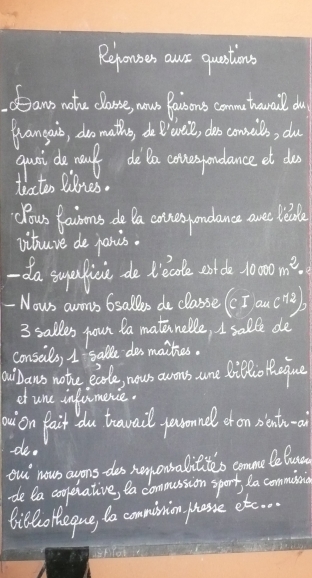 Réponses aux questions
- Dans notre classe, nous faisons comme travail du
français, des maths, de l'éveil, des conseils, du
quoi de neuf de la correspondance et des
textes libres.
Nous faisons de la correspondance avec l'école
vitruve de paris.
- La superficie de l'école est de 10 000 m².
- Nous avons 6 salles de classe (CI au CM2),
3 salles pour la maternelle, 1 salle de
conseils, 1 salle des maîtres.
oui Dans notre école, nous avons une bibliothèque
et une infirmerie.
oui On fait du travail personnel et on s'entr-ai
de.
oui nous avons des responsabilités comme le bureau
de la coopérative, la commission sport, la commission
bibliothèque, la commission presse etc...